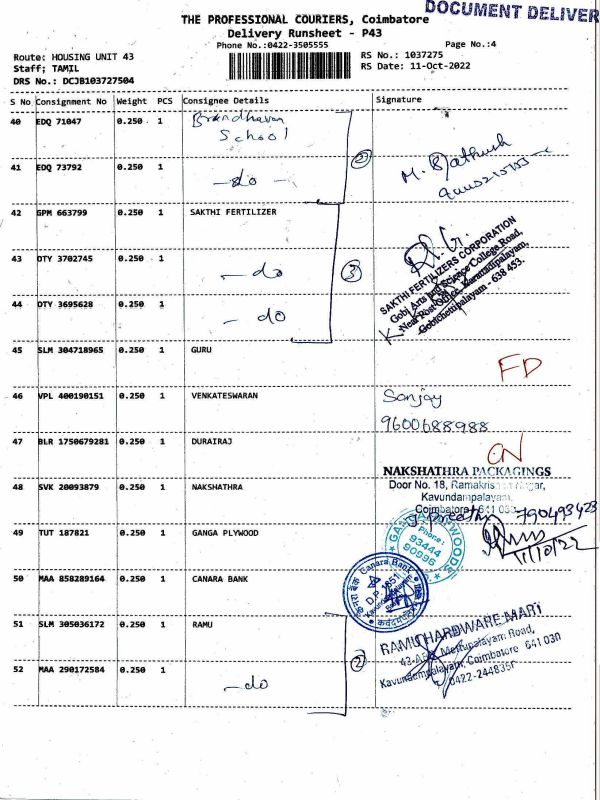 DOCUMENT DELIVER
THE PROFESSIONAL COURIERS, Coimbatore
Delivery Runsheet - P43
Phone No.:0422-3505555
Page No.:4
Route: HOUSING UNIT 43
RS No.: 1037275
Staff; TAMIL
RS Date: 11-Oct-2022
DRS No.: DCJB103727504
S No Consignment No Weight PCS Consignee Details Signature
40 EDQ 71047 0.250 1 Brandhavan School
41 EDQ 73792 0.250 1 - do -
2
M.
42 GPM 663799 0.250 1 SAKTHI FERTILIZER
43 OTY 3702745 0.250 1 - do
44 OTY 3695628 0.250 1 - do
3
SAKTHI FERTILIZERS CORPORATION
Gobi Arts and Science College Road,
Near Post Office, Karattadipalayam,
Gobichettipalayam - 638 453.
45 SLM 304718965 0.250 1 GURU FD
46 VPL 400190151 0.250 1 VENKATESWARAN Sanjay
9600688988
47 BLR 1750679281 0.250 1 DURAIRAJ CN
NAKSHATHRA PACKAGINGS
Door No. 18, Ramakrishna Nagar,
Kavundampalayam,
Coimbatore - 641 030
48 SVK 20093879 0.250 1 NAKSHATHRA
49 TUT 187821 0.250 1 GANGA PLYWOOD
GANGA PLYWOODS
Phone:
93444
90996
11/10/22
50 MAA 858289164 0.250 1 CANARA BANK
केनरा बैंक Canara Bank
D.P. 1851
51 SLM 305036172 0.250 1 RAMU
52 MAA 290172584 0.250 1 - do
2
RAMU HARDWARE MART
Mettupalayam Road,
Kavundampalayam, Coimbatore 641 030